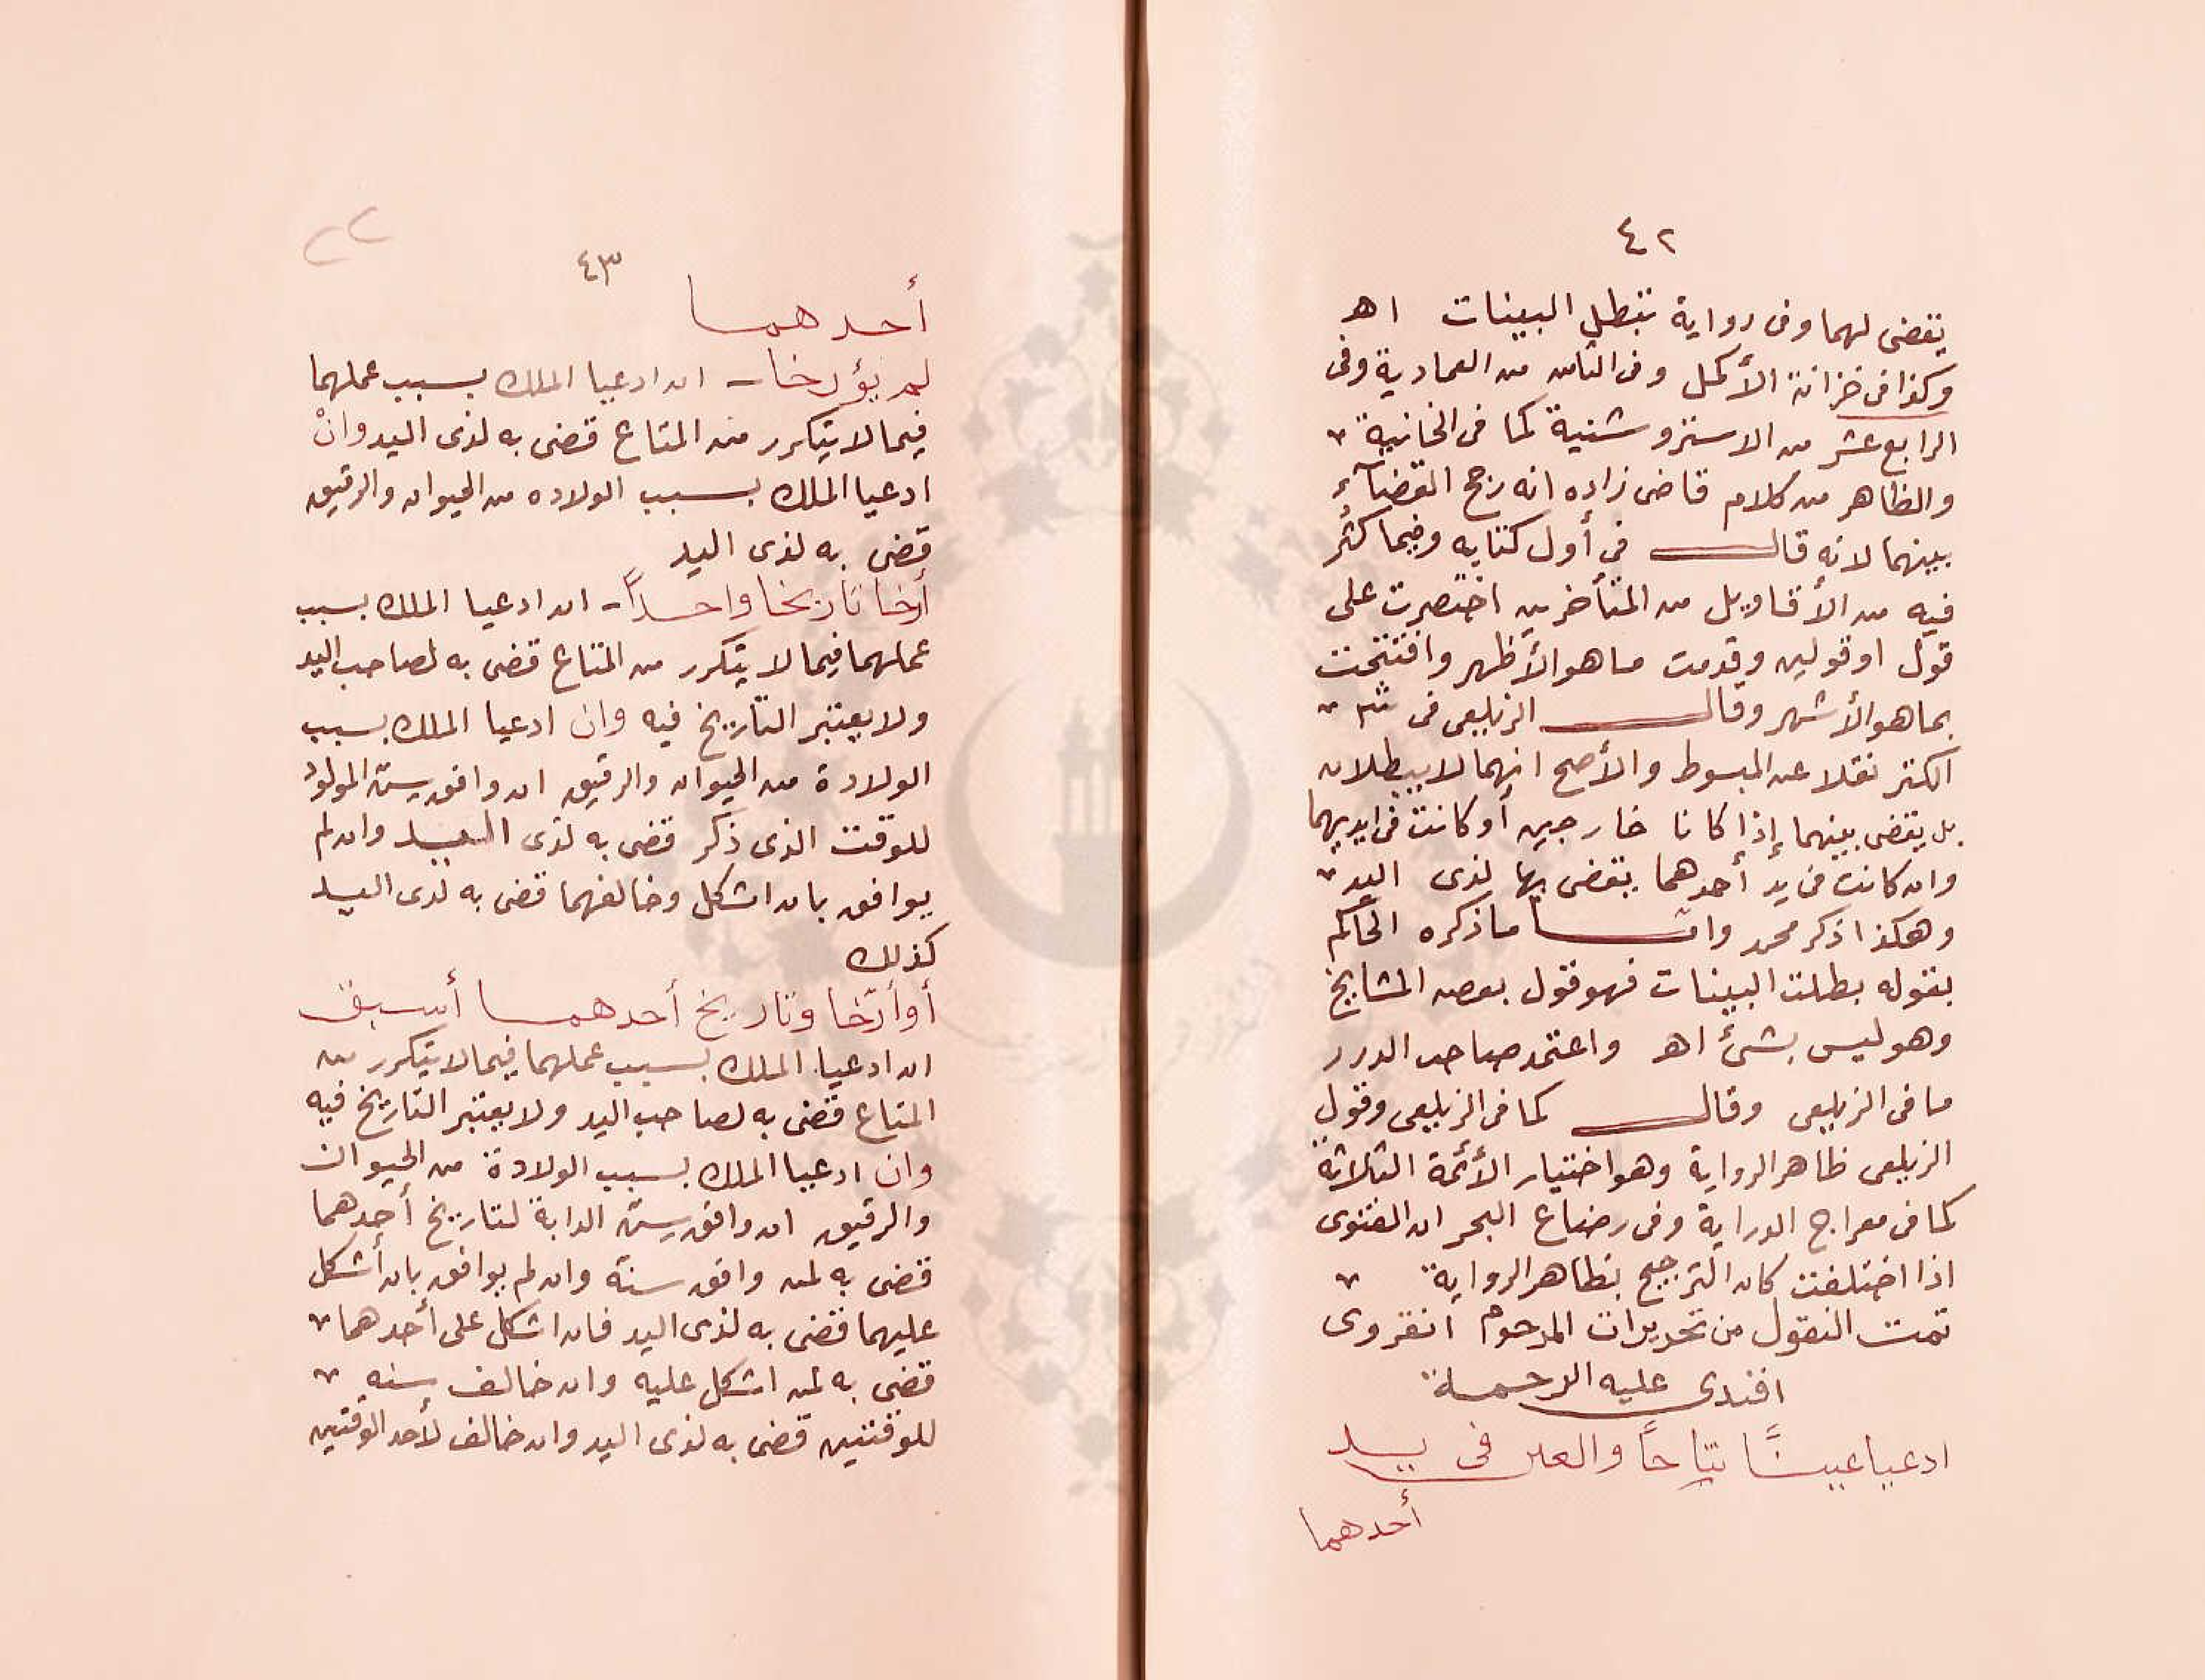 ٤٢
يقضى لهما وفى رواية تبطل البينات اهـ
وكذا فى خزانة الأكمل وفى الثامن من العمادية وفى
الرابع عشر من الاستروشنية كما فى الخانية
والظاهر من كلام قاضى زاده انه رجح القضآء
بينهما لانه قال فى أول كتابه وفيما كثر
فيه من الأقاويل من المتأخرين اختصرت على
قول او قولين وقدمت ما هو الأظهر وافتتحت
بما هو الأشهر وقال الزيلعى فى شرح
الكنز نقلا عن المبسوط والأصح انهما لا يبطلان
بل يقضى بينهما إذا كانا خارجين أو كانت فى ايديهما
وان كانت فى يد أحدهما يقضى بها لذى اليد
وهكذا ذكر محمد واما ما ذكره الحاكم
بقوله بطلت البينات فهو قول بعض المشايخ
وهو ليس بشئ اهـ واعتمد صاحب الدرر
ما فى الزيلعى وقال كما فى الزيلعى وقول
الزيلعى ظاهر الرواية وهو اختيار الأئمة الثلاثة
كما فى معراج الدراية وفى رضاع البحر ان الفتوى
اذا اختلفت كان الترجيح بظاهر الرواية
تمت النقول من تحريرات المرحوم انقروى
افندى عليه الرحمة
ادعيا عينًا نتاجًا والعين فى يد
أحدهما
٤٣
أحدهما
لم يؤرخا - ان ادعيا الملك بسبب عملهما
فيما لا يتكرر من المتاع قضى به لذى اليد وانْ
ادعيا الملك بسبب الولاده من الحيوان والرقيق
قضى به لذى اليد
أرخا تاريخا واحدًا - ان ادعيا الملك بسبب
عملهما فيما لا يتكرر من المتاع قضى به لصاحب اليد
ولا يعتبر التاريخ فيه وان ادعيا الملك بسبب
الولادة من الحيوان والرقيق ان وافق سن المولود
للوقت الذى ذكر قضى به لذى اليد وان لم
يوافق بان اشكل وخالفهما قضى به لذى اليد
كذلك
أو أرّخا وتاريخ أحدهما أسبق
ان ادعيا الملك بسبب عملهما فيما لا يتكرر من
المتاع قضى به لصاحب اليد ولا يعتبر التاريخ فيه
وان ادعيا الملك بسبب الولادة من الحيوان
والرقيق ان وافق سن الدابة لتاريخ أحدهما
قضى به لمن وافق سنة وان لم يوافق بان أشكل
عليهما قضى به لذى اليد فان اشكل على أحدهما
قضى به لمن اشكل عليه وان خالف سنه
للوقتين قضى به لذى اليد وان خالف لأحد الوقتين